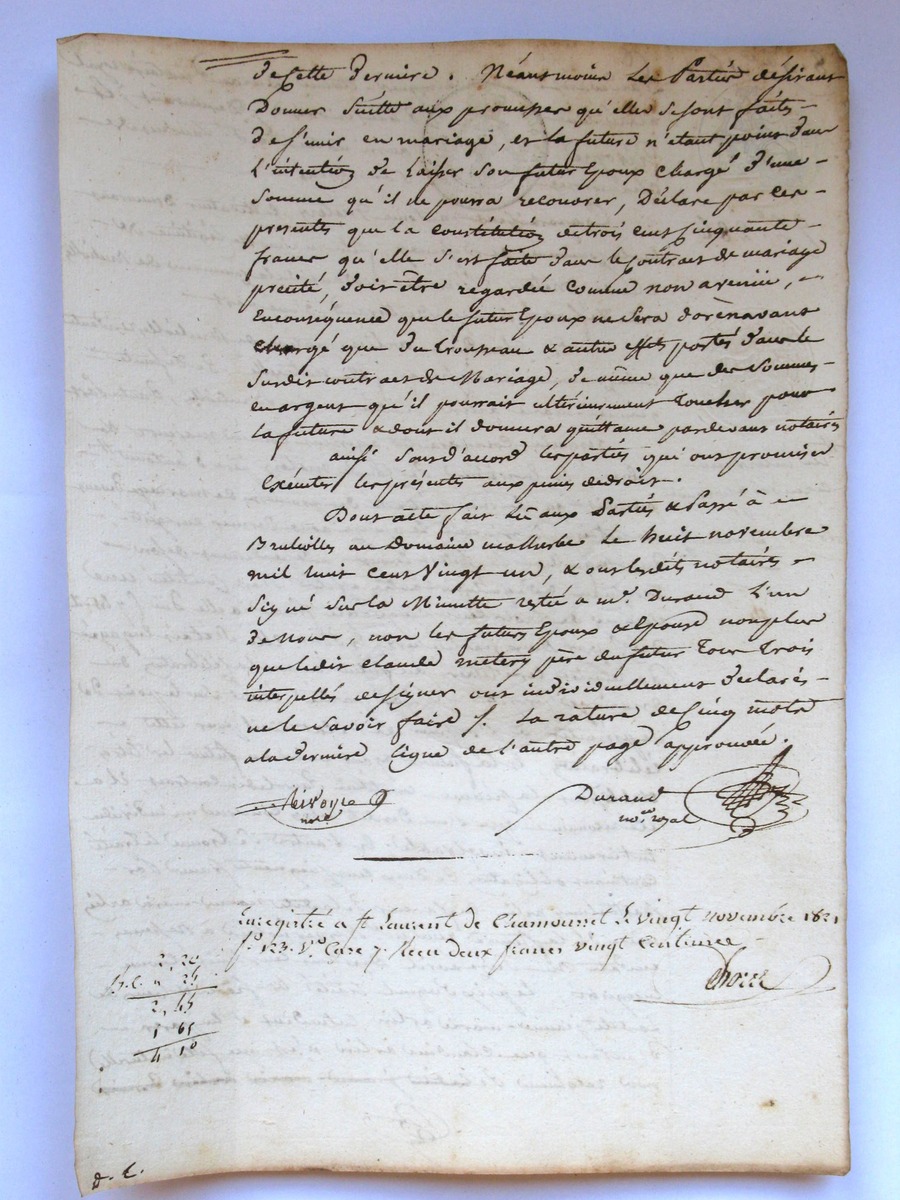 de cette derniere. Néantmoins les Parties désirant
Donner Suitte aux promesses qu'elles se sont faites
de s'unir en mariage, et la future n'étant point dans
L'intention de Laisser son futur Epoux chargé d'une
Somme qu'il ne pourra recouvrer, Déclare par ces
présentes que la constitution de trois cent cinquante
francs qu'elle s'est faite dans le contract de mariage
précité, doit être regardée comme non avenüe,
Enconséquence que le futur Epoux ne sera dorénavant
chargé que du Trousseau & autres effets portés dans le
Susdit contract de Mariage, de même que des Sommes
en argent qu'il pourrait ultérieurement Toucher pour
la future & dont il donnera quittance pardevant notaires
ainsi sont d'accord les parties qui ont promis
Exécuter les présentes aux peines de droit.
Dont acte fait Lû aux Parties & Passé à
Brullioles au Domaine malherbe Le huit novembre
mil huit cent Vingt un, & ont lesdits notaires
Signé Sur la Minutte restée a me. Durand L'un
de Nous, non les futurs Epoux & Epouse non plus
que ledit claude metery père du futur Tous Trois
interpellés de signer ont individuellement déclarés
ne le Savoir faire /. La rature de cinq mots
a la dernière ligne de l'autre page approuvée.
Durand
not. royal
Enregistré a St Laurent de Chamousset le vingt novembre 1821
fo 123. Vo Case 7. Recu deux francs vingt Centimes
2, 20
S.C. " 25
2, 45
1 65
4 10
D. C.